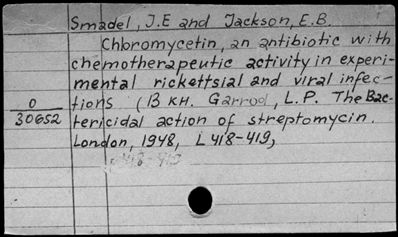 Smadel, J.E and Jackson, E.B.
Chloromycetin, an antibiotic with
chemotherapeutic activity in experi-
mental rickettsial and viral infec-
tions (В кн. Garrod, L.P. The Bac-
tericidal action of streptomycin.
London, 1948, L 418-419,
O
30652